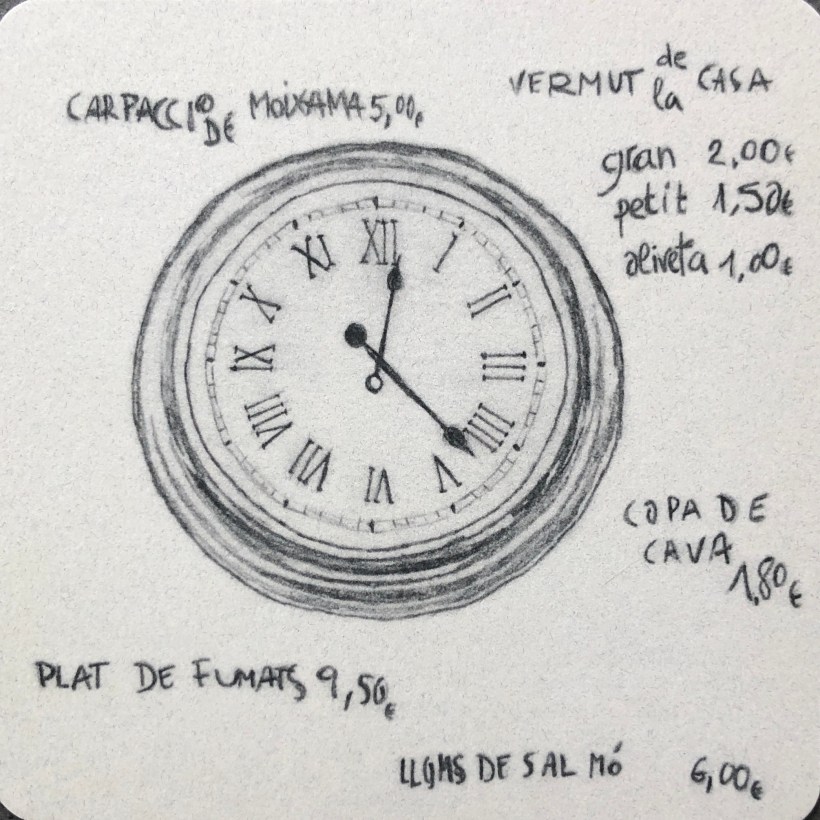 CARPACCIO DE MOIXAMA 5,00€
VERMUT de la CASA
gran 2,00€
petit 1,50€
oliveta 1,00€
XII
I
II
III
IIII
V
VI
VII
VIII
IX
X
XI
COPA DE
CAVA
1,80€
PLAT DE FUMATS 9,50€
LLOMS DE SALMÓ 6,00€